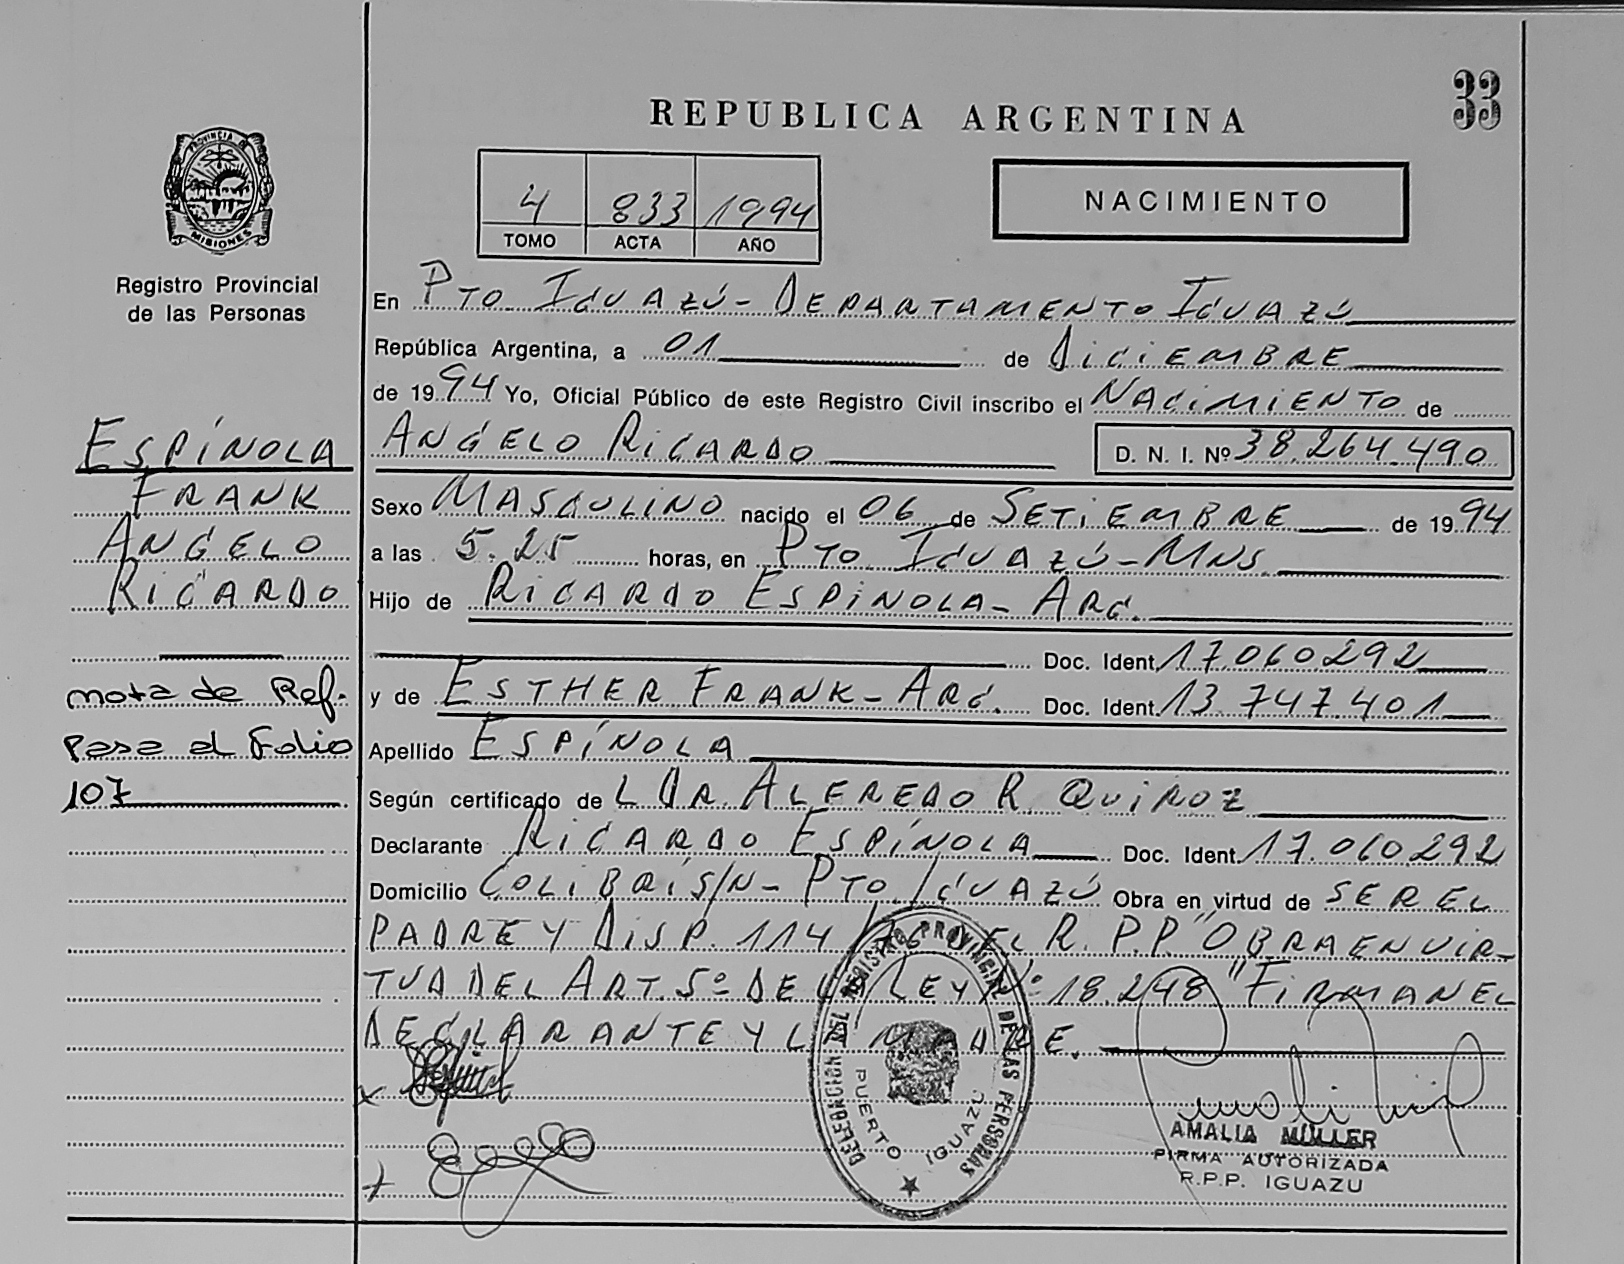 33
REPUBLICA ARGENTINA
PROVINCIA DE
MISIONES
Registro Provincial
de las Personas
4 833 1994
TOMO ACTA AÑO
NACIMIENTO
En PTO IGUAZÚ - DEPARTAMENTO IGUAZÚ
República Argentina, a 01 de DICIEMBRE
de 1994 Yo, Oficial Público de este Registro Civil inscribo el NACIMIENTO de
ANGELO RICARDO D. N. I. Nº 38.264.490
Sexo MASCULINO nacido el 06 de SETIEMBRE de 1994
a las 5.25 horas, en PTO IGUAZÚ - MNS
Hijo de RICARDO ESPINOLA - ARG.
Doc. Ident. 17.060292
y de ESTHER FRANK - ARG. Doc. Ident. 13.747.401
Apellido ESPÍNOLA
Según certificado de L DR. ALFREDO R. QUIROZ
Declarante RICARDO ESPÍNOLA Doc. Ident. 17.060292
Domicilio COLIBRÍ S/N - PTO IGUAZÚ Obra en virtud de SER EL
PADRE Y DISP. 114/76 EL R.P.P. "OBRA EN VIR-
TUD DEL ART. 5º DE LEY Nº 18.248" FIRMAN EL
DECLARANTE Y LA MADRE.
ESPÍNOLA
FRANK
ANGELO
RICARDO
nota de Ref.
Pasa al Folio
107
DELEGACION DEL REGISTRO PROVINCIAL DE LAS PERSONAS
PUERTO IGUAZU
AMALIA MÜLLER
FIRMA AUTORIZADA
R.P.P. IGUAZU